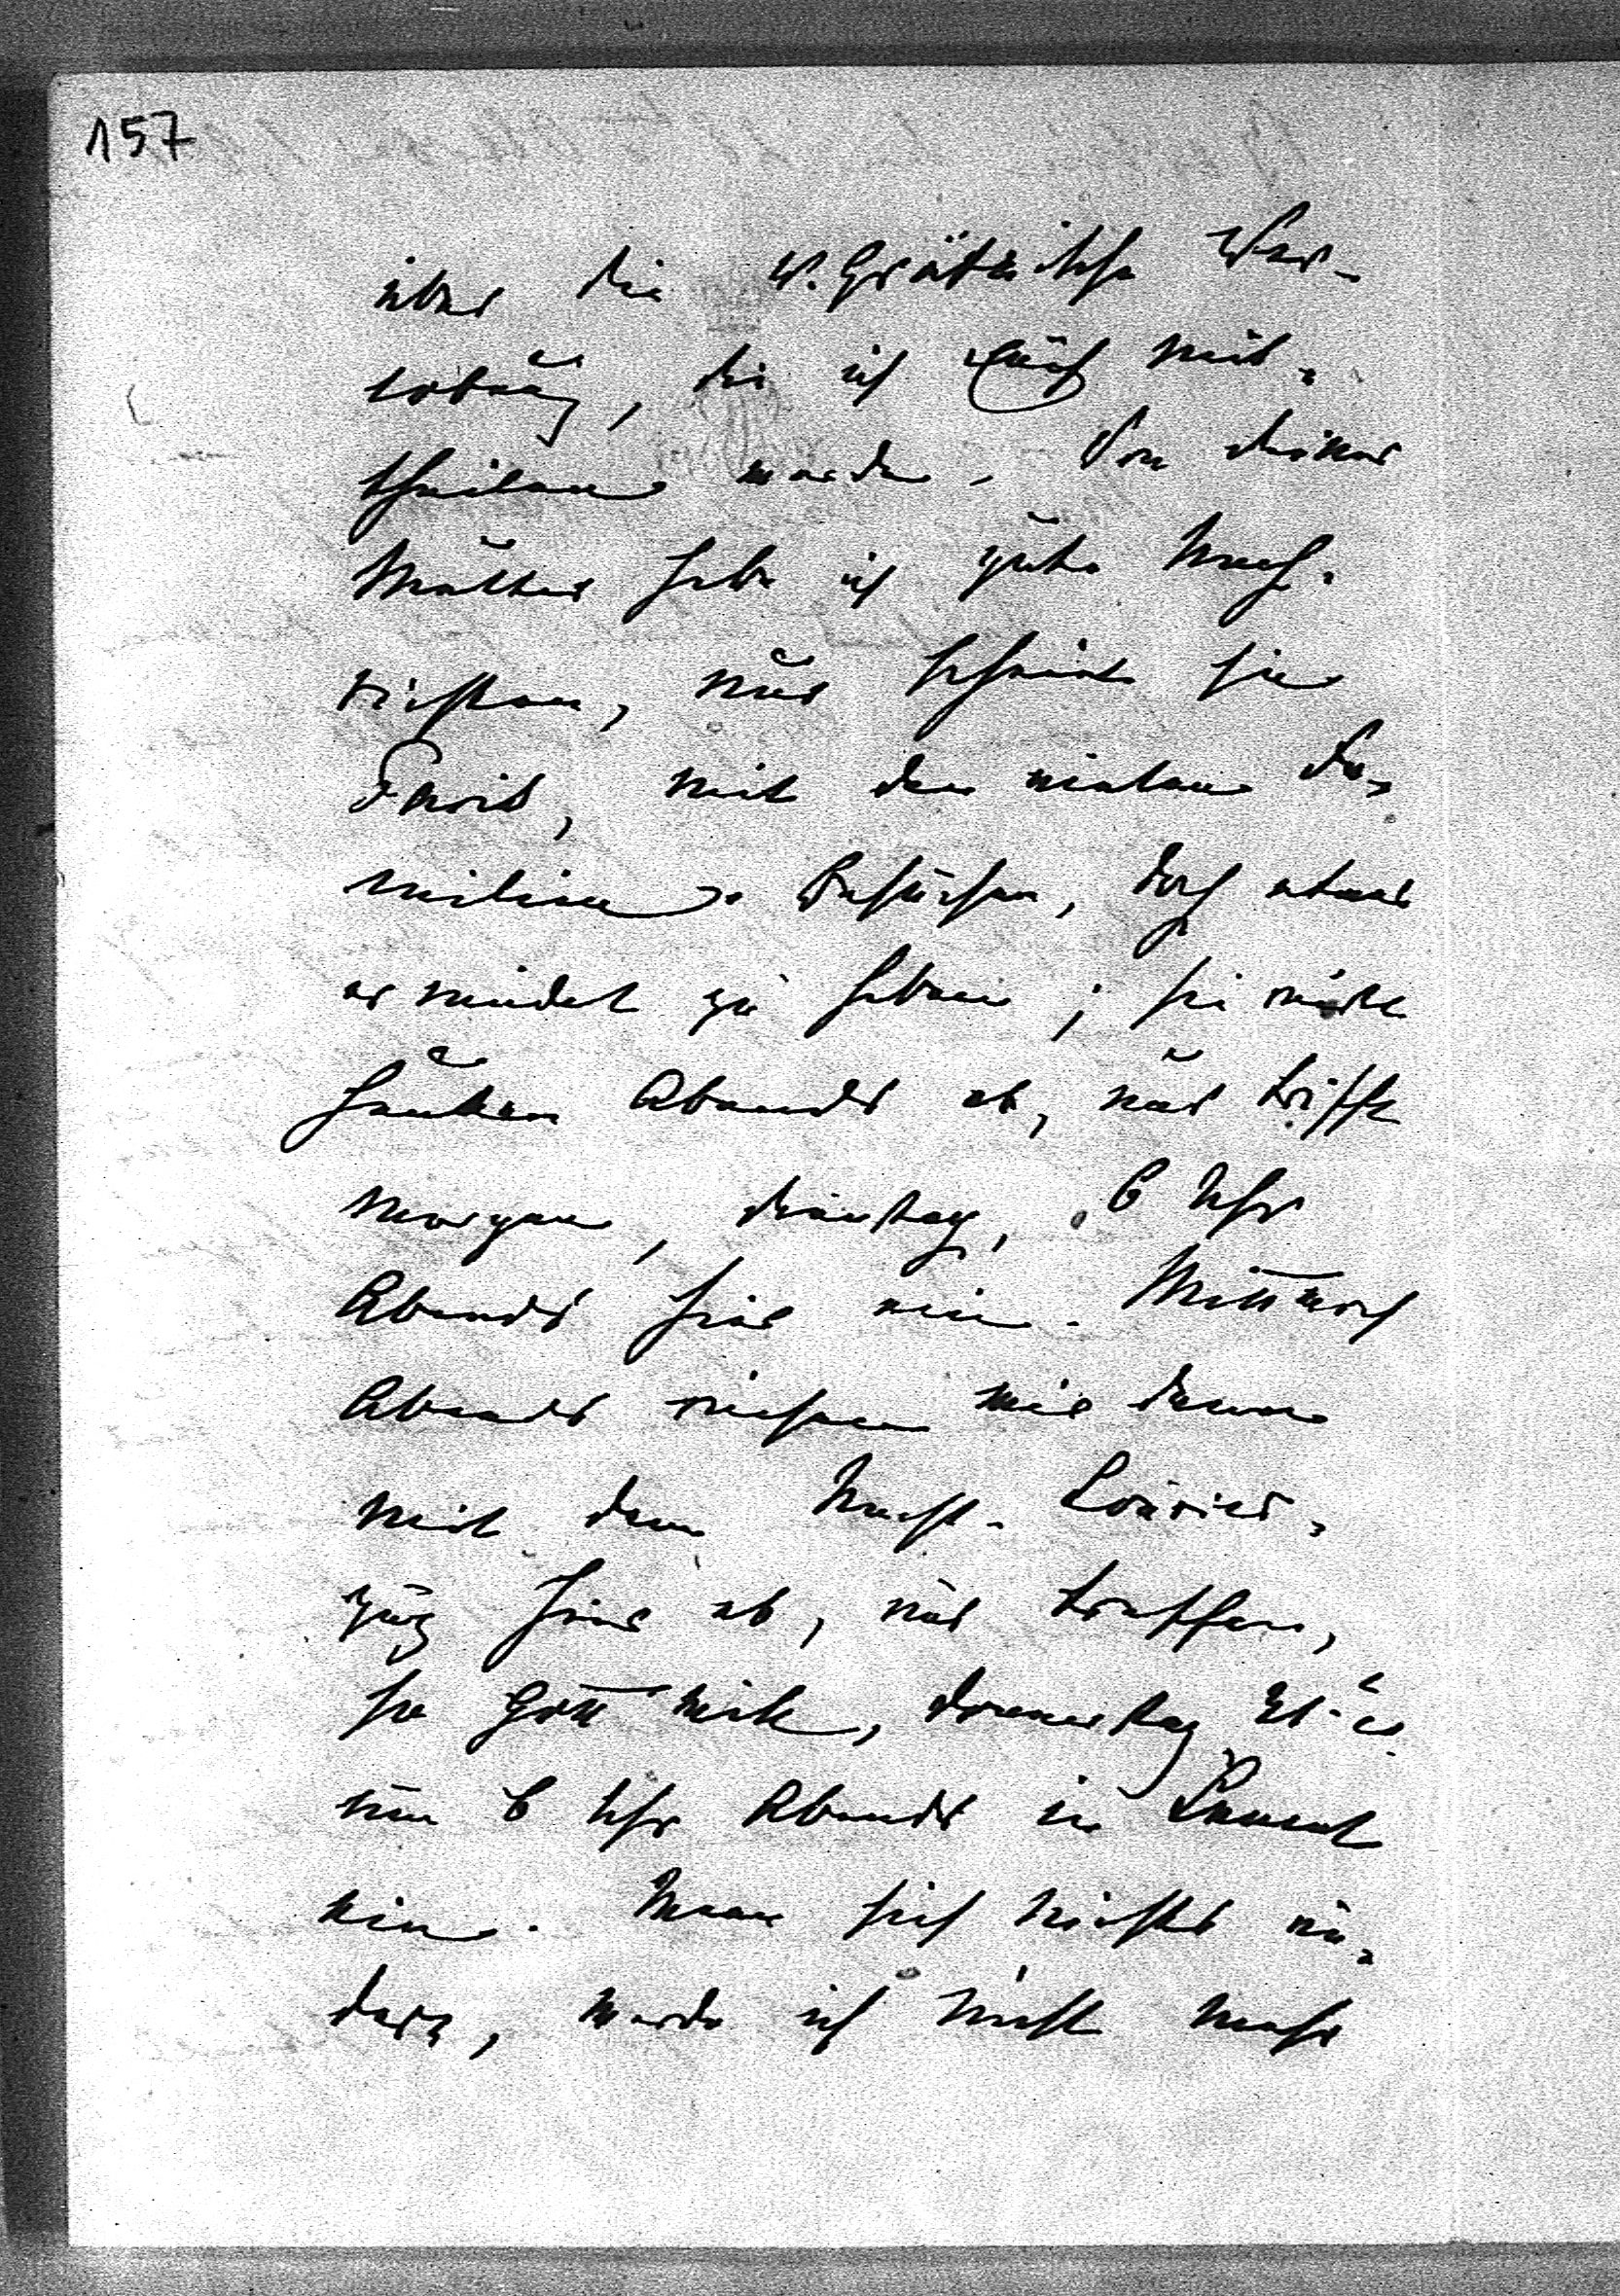 157
über die v. Ver-
, die ich Euch mit-
theilen werde. Von deiner
Mutter habe ich gute Nach-
richten, nur scheint sie
Paris, mit den vielen Fa-
milien-Besuchen, doch etwas
ermüdet zu haben; sie reist
heute Abends ab, und trifft
morgen, Dienstag, 6 Uhr
Abends hier ein. Mittwoch
Abends reisen wir dann
mit dem Nacht-Courier-
zug hier ab, und treffen,
so Gott will, Donnerstag
um 6 Uhr Abends in
ein. Wenn sich nichts än-
dert, werde ich nicht mehr